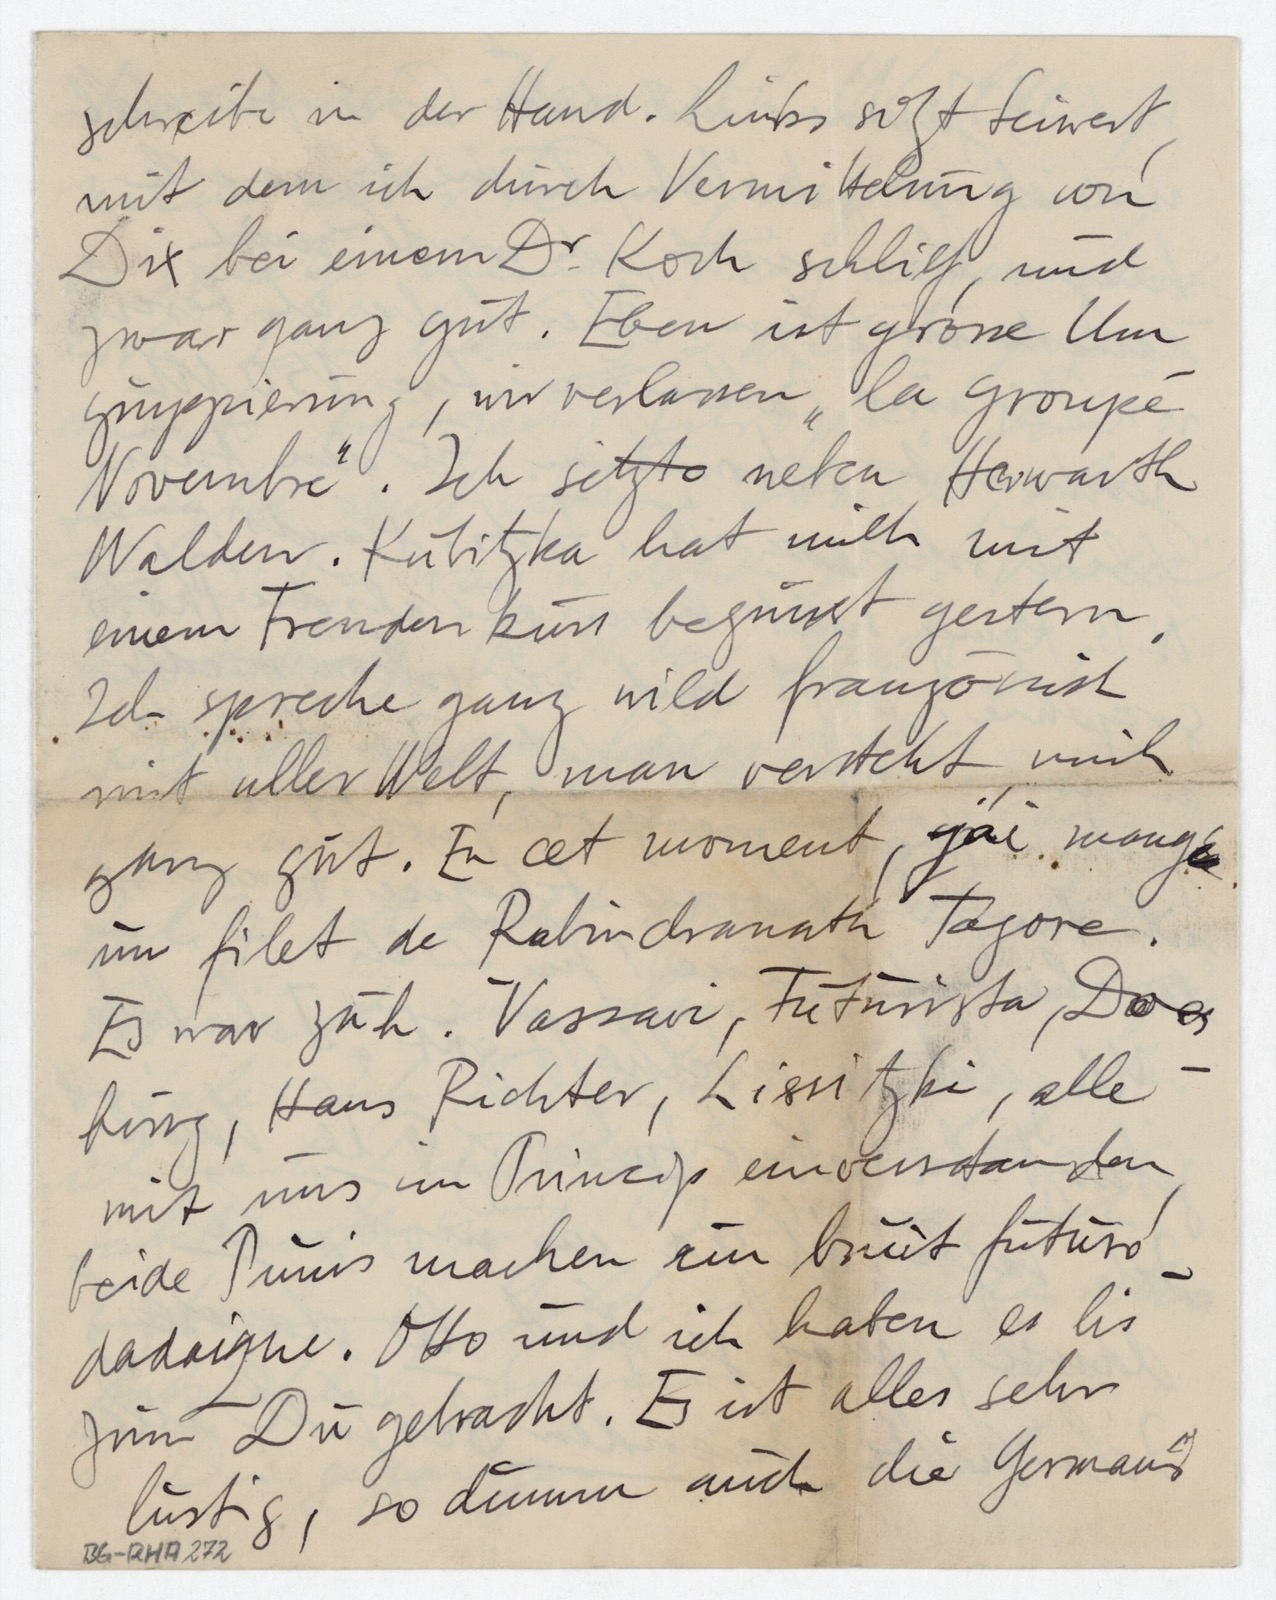 schreibe in der Hand. Links sitzt Seiwert,
mit dem ich durch Vermittelung von
Dix bei einem Dr. Koch schlief, und
zwar ganz gut. Eben ist grosse Um
gruppierung, wir verlassen „la groupe
Novembre". Ich sitzto neben Herwarth
Walden. Kubitzka hat mich mit
einem Fremden kuss begrüsst gestern.
Ich spreche ganz wild französisch
mit aller Welt, man versteht mich
ganz gut. En cet moment, j'ái mangé
un filet de Rabindranath Tagore.
Es war zäh. Vassari, Futurista, Does
burg, Hans Richter, Lissitzki, alle
mit uns im Princip einverstanden,
beide Punis machen un bruit futuro-
dadaique. Otto und ich haben es bis
zum Du gebracht. Es ist alles sehr
lustig, so dumm auch die Germans
BG-RHA 272